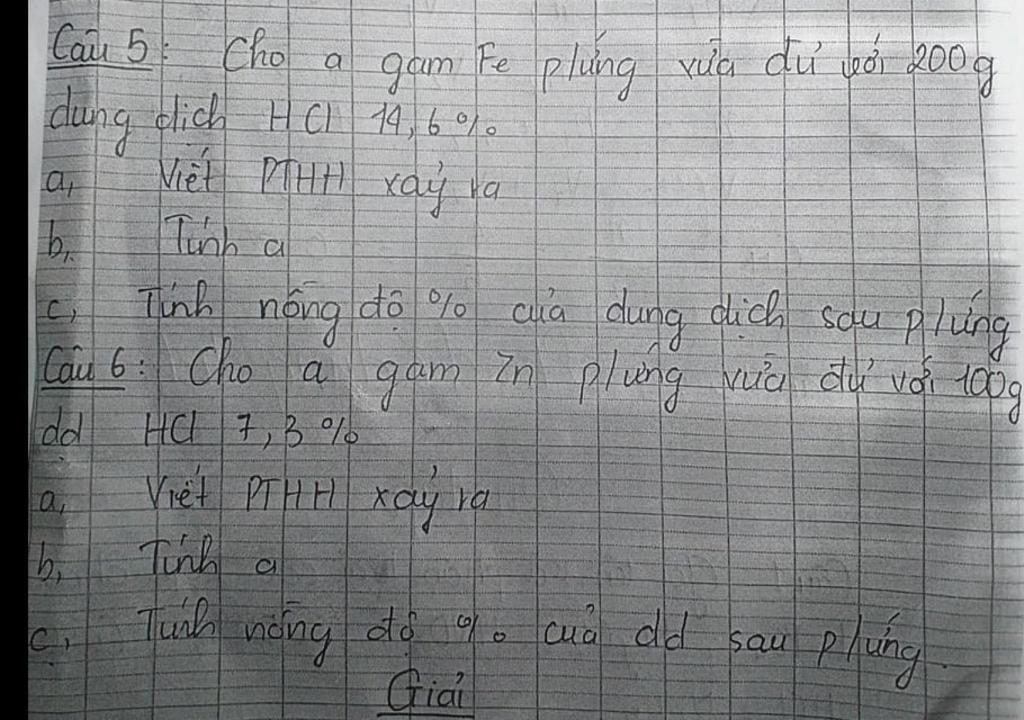 Câu 5: Cho a gam Fe p/ứng vừa đủ với 200g
dung dịch HCl 14,6%
a, Viết PTHH xảy ra
b, Tính a
c, Tính nồng độ % của dung dịch sau p/ứng
Câu 6: Cho a gam Zn p/ứng vừa đủ với 100g
dd HCl 7,3%
a, Viết PTHH xảy ra
b, Tính a
c, Tính nồng độ % của dd sau p/ứng.
Giải